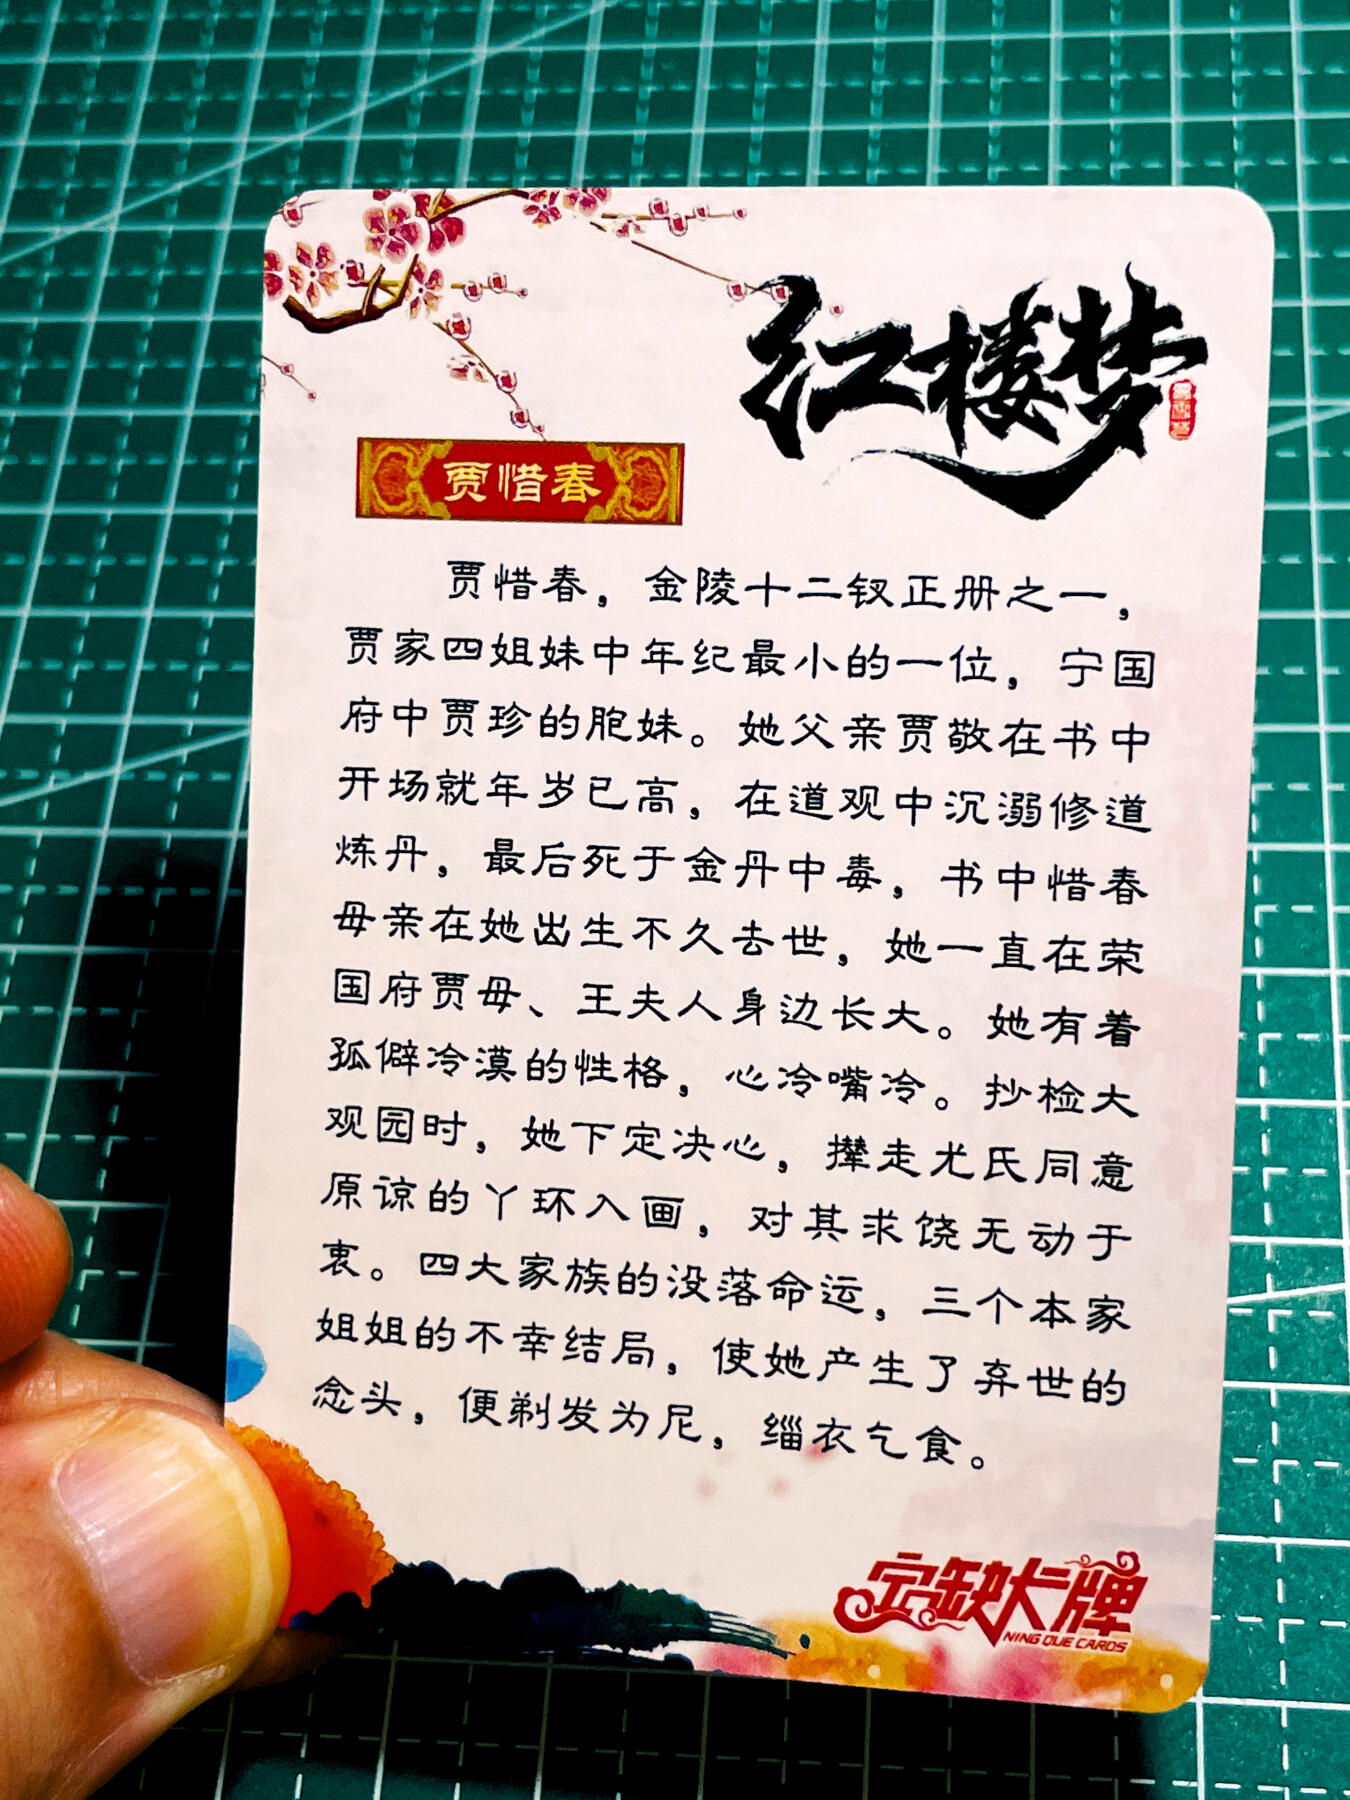 红楼梦
贾惜春
贾惜春，金陵十二钗正册之一，
贾家四姐妹中年纪最小的一位，宁国
府中贾珍的胞妹。她父亲贾敬在书中
开场就年岁已高，在道观中沉溺修道
炼丹，最后死于金丹中毒，书中惜春
母亲在她出生不久去世，她一直在荣
国府贾母、王夫人身边长大。她有着
孤僻冷漠的性格，心冷嘴冷。抄检大
观园时，她下定决心，撵走尤氏同意
原谅的丫环入画，对其求饶无动于
衷。四大家族的没落命运，三个本家
姐姐的不幸结局，使她产生了弃世的
念头，便剃发为尼，缁衣乞食。
宁缺大牌
NING QUE CARDS